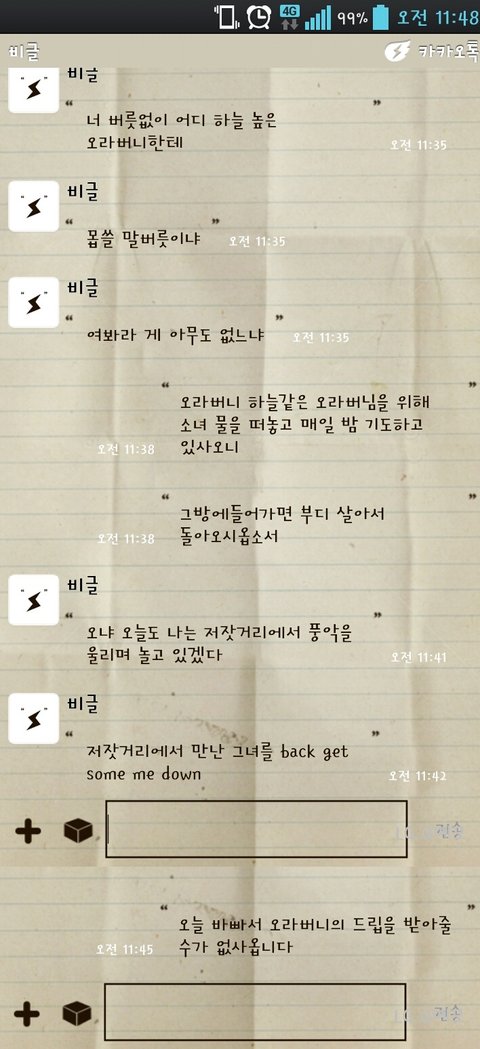 4G 99% 오전 11:48
비글 카카오톡
비글
너 버릇없이 어디 하늘 높은
오라버니한테
오전 11:35
비글
몹쓸 말버릇이냐 오전 11:35
비글
여봐라 게 아무도 없느냐 오전 11:35
오라버니 하늘같은 오라버님을 위해
소녀 물을 떠놓고 매일 밤 기도하고
있사오니
오전 11:38
그방에들어가면 부디 살아서
돌아오시옵소서
오전 11:38
비글
오냐 오늘도 나는 저잣거리에서 풍악을
울리며 놀고 있겠다
오전 11:41
비글
저잣거리에서 만난 그녀를 back get
some me down
오전 11:42
전송
오늘 바빠서 오라버니의 드립을 받아줄
수가 없사옵니다
오전 11:45
전송